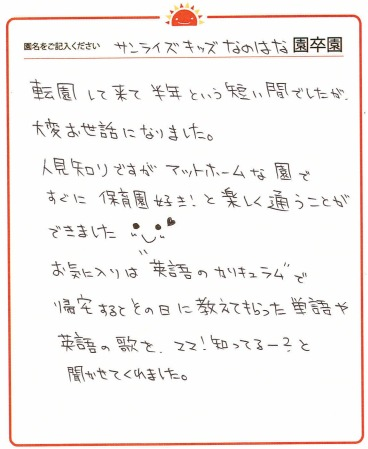 園名をご記入ください サンライズキッズ なのはな 園卒園
転園して来て半年という短い間でしたが、
大変お世話になりました。
人見知りですがアットホームな園で
すぐに保育園好き!と楽しく通うことが
できました
お気に入りは英語のカリキュラムで
帰宅するとその日に教えてもらった単語や
英語の歌を、ママ!知ってるー?と
聞かせてくれました。